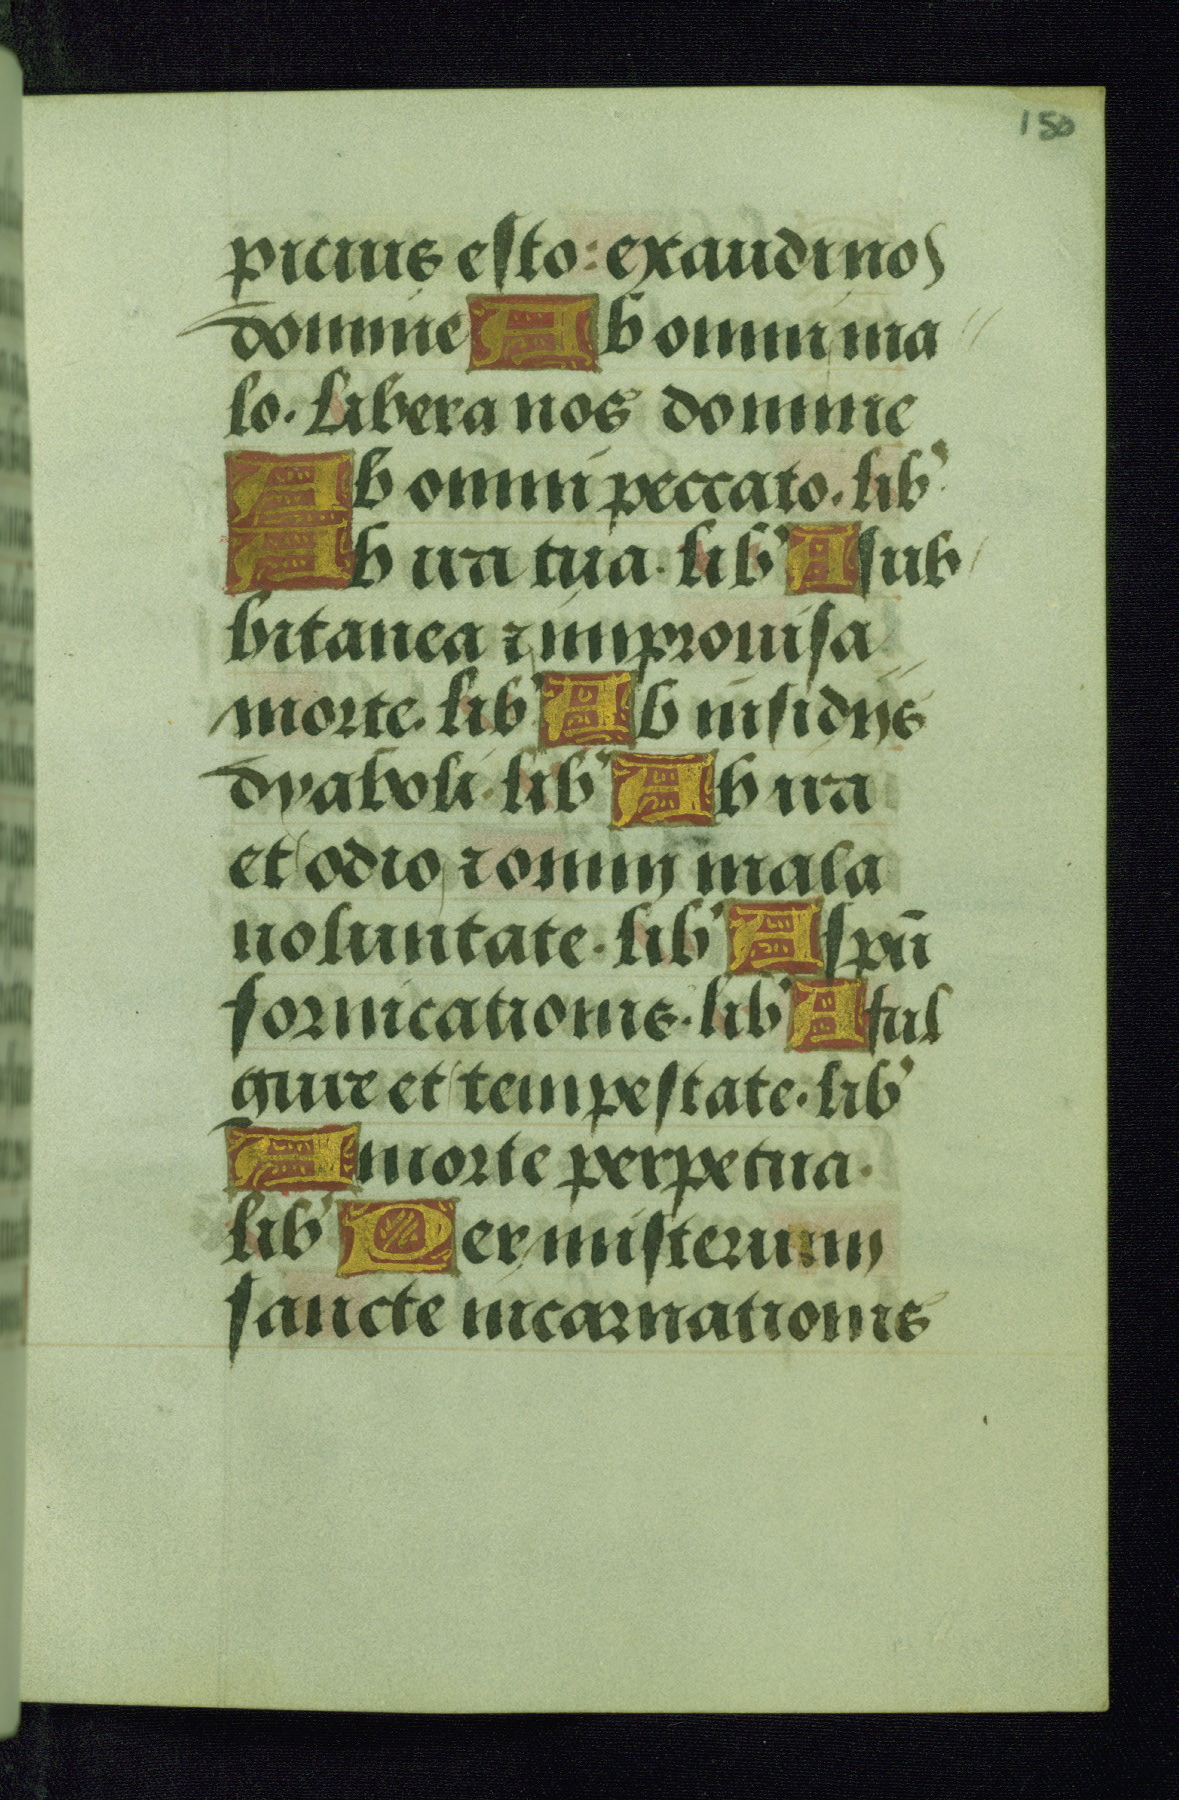 150
picius esto: exaudi nos
domine Ab omni ma
lo. Libera nos domine
Ab omni peccato. lib'
Ab ira tua. lib' A sub
bitanea ⁊ improuisa
morte. lib' Ab insidijs
dyaboli. lib' Ab ira
et odio ⁊ omni mala
uoluntate. lib' A spū
fornicationis. lib' A ful
gure et tempestate. lib'
A morte perpetua.
lib' Per misterium
sancte incarnationis